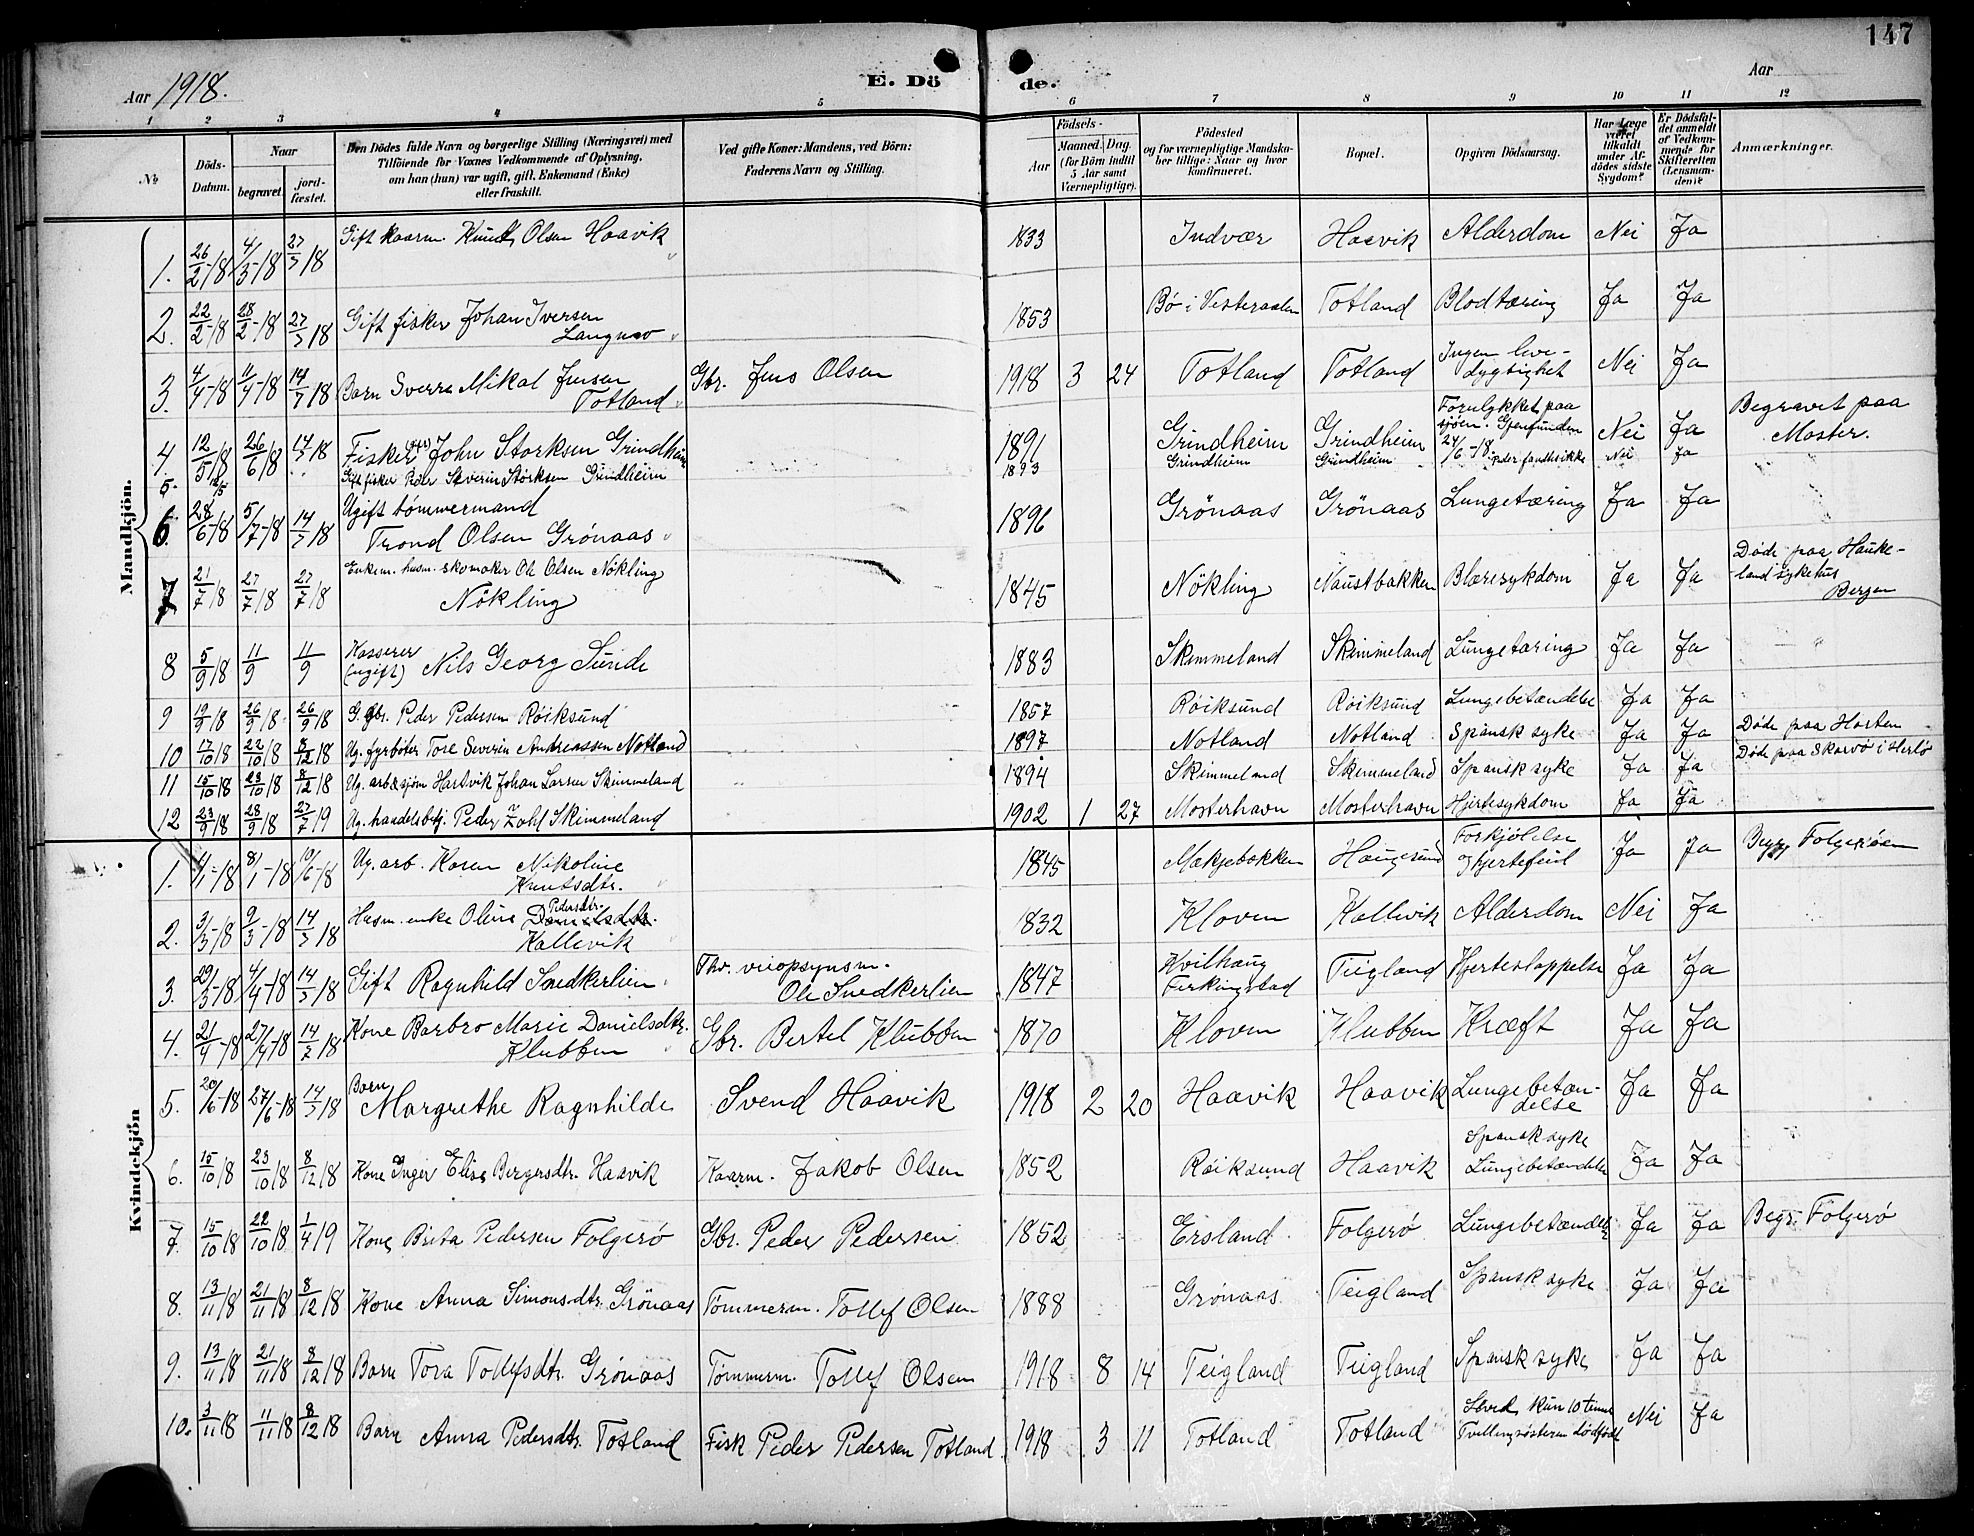 147
Aar 1918.
E. Dö de.
Aar
1 2 3 4 5 6 7 8 9 10 11 12
No
Döds-Datum.
Naar
begravet.
jord-fæstet.
Den Dödes fulde Navn og borgerlige Stilling (Næringsvei) med
Tilföiende for Voxnes Vedkommende af Oplysning,
om han (hun) var ugift, gift, Enkemand (Enke)
eller fraskilt.
Ved gifte Koner: Mandens, ved Börn:
Faderens Navn og Stilling.
Födsels-
Aar
Maaned. Dag.
(for Börn indtil
5 Aar samt
Værnepligtige).
Födested
og for værnepligtige Mandska-
ber tillige: Naar og hvor
konfirmeret.
Bopæl.
Opgiven Dödsaarsag.
Har Læge
været
tilkaldt
under Af-
dödes sidste
Sygdom?
Er Dödsfal-
det anmeldt
af Vedkom-
mende for
Skifteretten
(Lensman-
den)?
Anmærkninger.
Mandkjön.
1. 26/2-18 4/3-18 27/3 18 Gift kaarm. Knut Olsen Haavik 1833 Indvær Haavik Alderdom Nei Ja
2. 22/2-18 28/2-18 27/3 18 Gift fisker Johan Iversen 1853 Bø i Vesteraalen Totland Blodtæring Ja Ja
3. 4/4-18 11/4-18 14/7 18 Barn Sverre Mikal Jensen Totland Gbr. Jens Olsen 1918 3 24 Totland Totland Ingen leve-
dygtighet Nei Ja
4. 12/5 18 26/6 18 14/7 18 Fisker (gift) John Storksen Grindheim 1891 Grindheim Grindheim Forulykket paa
sjøen. Gjenfunden
24/6-18. Nei Ja Begravet paa
Moster.
5. 12/5 Gift fisker Peder Severin Storksen Grindheim 1893 Grindheim Grindheim Peder fandtes ikke Nei Ja
6. 28/6-18 5/7-18 14/7 18 Ugift tømmermand
Trond Olsen Grönaas 1896 Grönaas Grönaas Lungetæring Ja Ja
7 21/7 18 27/7 18 27/7 18 Enkem. husm. skomaker Ole Olsen Nökling
Nökling 1845 Nökling Naustbakken Blæresykdom Ja Ja Døde paa Hauke-
land sykehus
Bergen
8 5/9 18 11/9 11/9 Kasserer
(ugift) Nils Georg Sunde 1883 Skimmeland Skimmeland Lungetæring Ja Ja "
9 19/9 18 26/9 18 26/9 18 G. gbr. Peder Pedersen Røiksund 1857 Røiksund Røiksund Lungebetændelse Ja Ja
10 17/10 18 22/10 18 8/12 18 Ug. fyrbøter Tore Severin Andreassen Notland 1897 Notland Notland Spansk syke Ja Ja Døde paa Horten
11 15/10 18 23/10 18 8/12 18 Ug. arb. & sjøm Hartvik Johan Larsen Skimmeland 1894 Skimmeland Skimmeland Spansk syke Ja Ja Døde paa
12 23/9 18 28/9 18 27/7 19 Ug. handelsbetj. Peder Zahl Skimmeland 1902 1 27 Mosterhavn Mosterhavn Hjertesykdom Ja Ja
Kvindekjön
1. 4/1-18 8/1-18 10/6-18 Ug. arb. Karen Nikoline
Knutsdtr. 1845 Haugesund Forkjølelse
og hjertefeil Ja Ja
2. 3/3-18 9/3-18 14/7 18 Husm. enke Oline Pedersdtr.
Kallevik 1832 Kloven Kallevik Alderdom Nei Ja
3. 29/3-18 4/4-18 14/7 18 Gift Ragnhild Snedkerlien Fhv. veiopsynsm.
Ole Snedkerlien 1847 Kvilhaug
Ferkingstad Teigland Hjerteslappelse Ja Ja
4. 21/4-18 27/4-18 14/7 18 Kone Barbro Marie Danielsdtr.
Klubben Gbr. Bertel Klubben 1870 Kloven Klubben Kræft Ja Ja
5. 20/6-18 27/6-18 14/7 18 Barn
Margrethe Ragnhilde Svend Haavik 1918 2 20 Haavik Haavik Lungebetæn-
delse Ja Ja
6. 15/10 18 23/10 18 8/12 18 Kone Inger Elise Bergersdtr. Haavik Kaarm. Jakob Olsen 1852 Røiksund Haavik Spansk syke
Lungebetændelse Ja Ja
7. 15/10 18 22/10 18 1/4 19 Kone Brita Pedersen Folgerø Gbr. Peder Pedersen 1852 Ersland Folgerø Lungebetændelse Ja Ja Begr. Folgerø
8. 13/11 18 21/11 18 8/12 18 Kone Anna Simonsdtr. Grönaas Tømmerm. Tollef Olsen 1888 Grønaas Teigland Spansk syke Ja Ja
9. 13/11 18 21/11 18 8/12 18 Barn Tora Tollefsdtr. Grønaas Tømmerm. Tollef Olsen 1918 8 14 Teigland Teigland Spansk syke Ja Ja
10. 3/11 18 11/11 18 8/12 18 Barn Anna Pedersdtr. Totland Fisk Peder Pedersen Totland 1918 3 11 Totland Totland Levede kun 10 timer
Tvillingsøsteren dødfødt Nei Ja